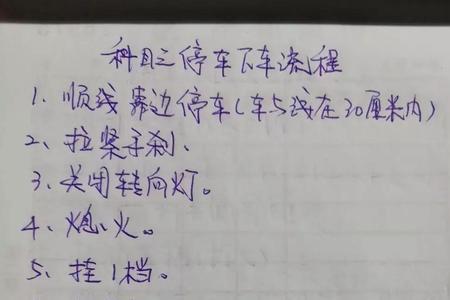 科目三停车下车流程
1、顺线靠边停车(车与线在30厘米内)
2、拉紧手刹、
3、关闭转向灯。
4、熄火。
5、挂1档。